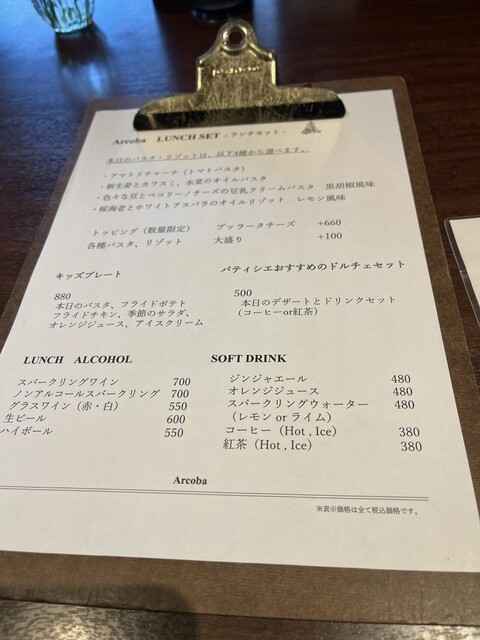 Arcoba LUNCH SET - ランチセット -
本日のパスタ・リゾットは、以下4種から選べます。
・アマトリチャーナ（トマトパスタ）
・新生姜とカラスミ、水菜のオイルパスタ
・色々な豆とペコリーノチーズの豆乳クリームパスタ 黒胡椒風味
・桜海老とホワイトアスパラのオイルリゾット レモン風味
トッピング（数量限定） ブッラータチーズ +660
各種パスタ、リゾット 大盛り +100
キッズプレート
880
本日のパスタ、フライドポテト
フライドチキン、季節のサラダ、
オレンジジュース、アイスクリーム
パティシエおすすめのドルチェセット
500
本日のデザートとドリンクセット
（コーヒーor紅茶）
LUNCH ALCOHOL
スパークリングワイン 700
ノンアルコールスパークリング 700
グラスワイン（赤・白） 550
生ビール 600
ハイボール 550
SOFT DRINK
ジンジャエール 480
オレンジジュース 480
スパークリングウォーター 480
（レモン or ライム）
コーヒー（Hot , Ice） 380
紅茶（Hot , Ice） 380
Arcoba
※表示価格は全て税込価格です。